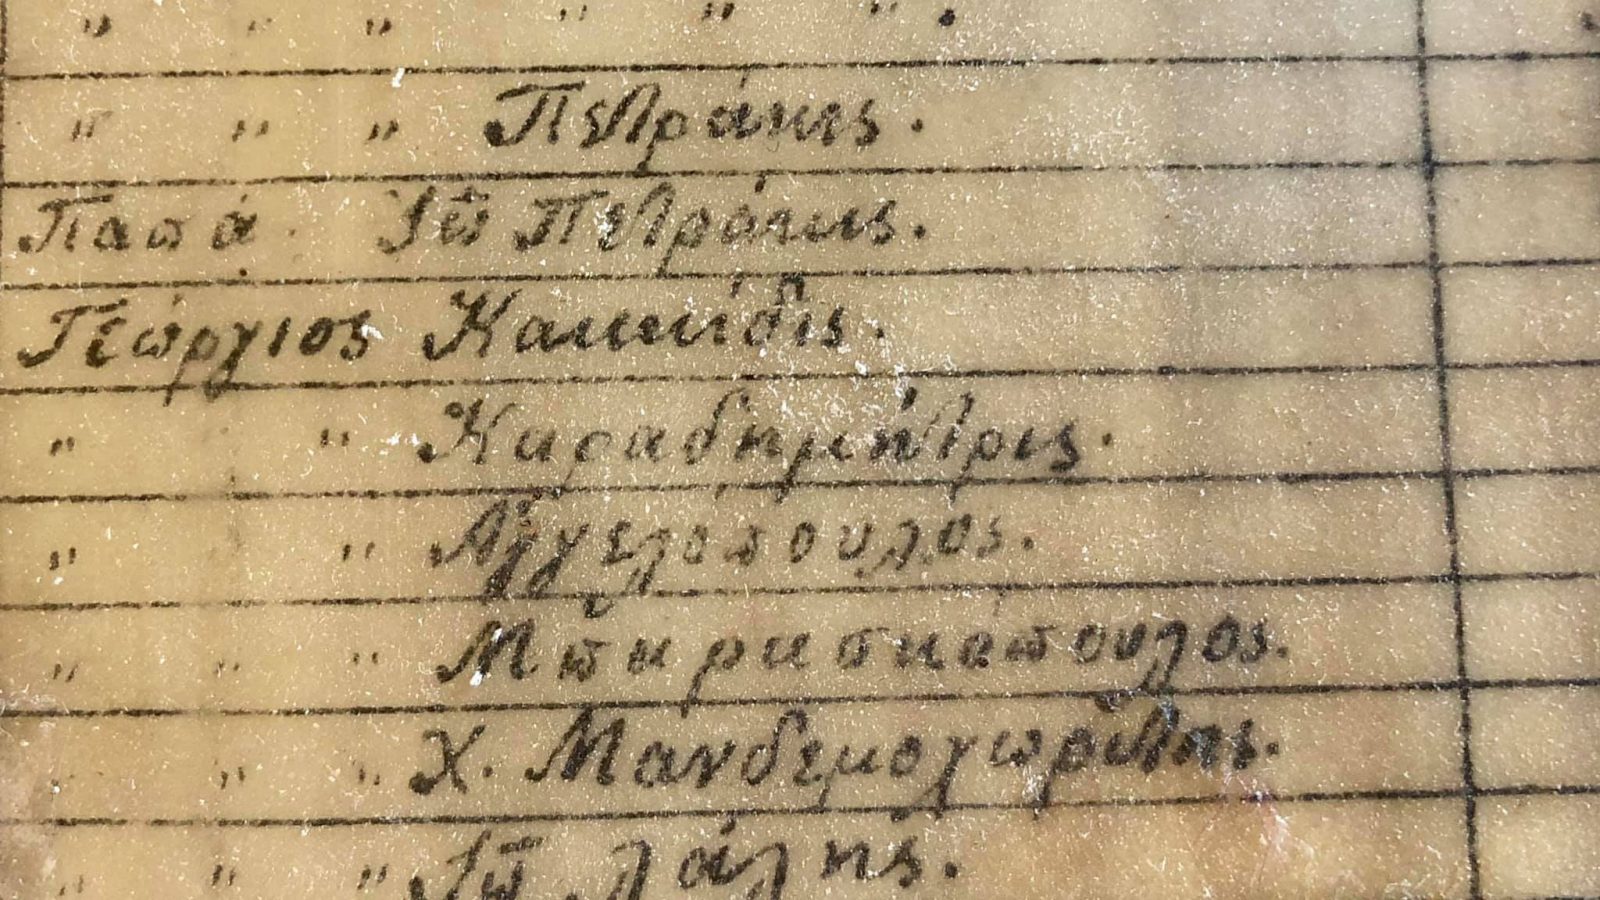 " " " " " " .
" " " Πετράκις.
Παπά Ἰω Πετράκις.
Γεώργιος Κακκίδις.
" " Καραδημήτρις.
" " Ἀγγελόπουλος.
" " " Μπαρασκόπουλος.
" " Χ. Μανδεμοχωρίτης.
" " " Ἰω Λάλης.